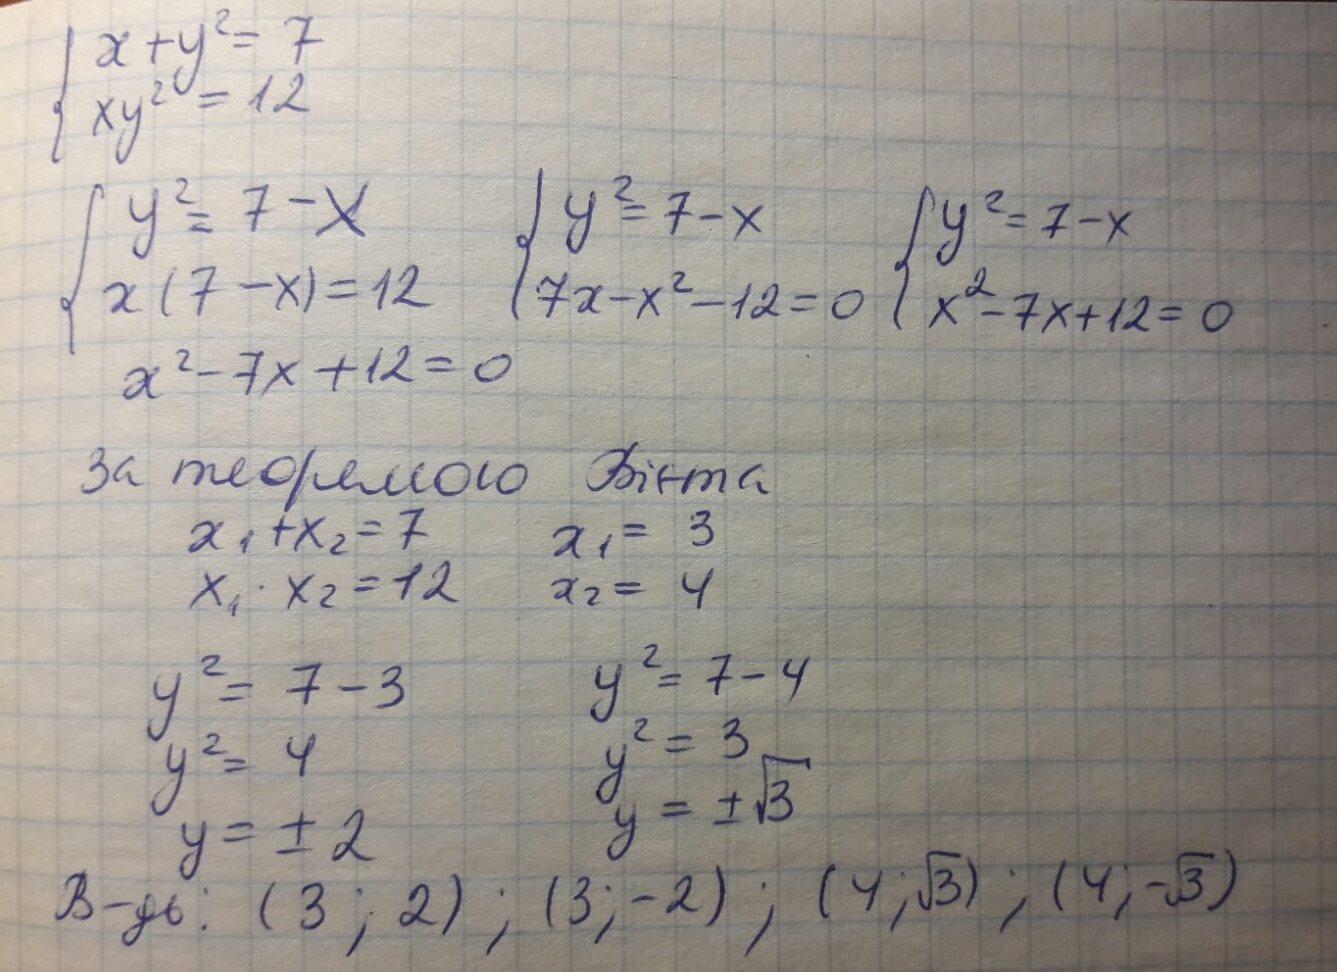 x + y² = 7
xy² = 12
y² = 7 - x
x(7 - x) = 12
y² = 7 - x
7x - x² - 12 = 0
y² = 7 - x
x² - 7x + 12 = 0
x² - 7x + 12 = 0
За теоремою Вієта
x₁ + x₂ = 7 x₁ = 3
x₁ · x₂ = 12 x₂ = 4
y² = 7 - 3 y² = 7 - 4
y² = 4 y² = 3
y = ± 2 y = ±√3
В-дь: (3; 2); (3; -2); (4; √3); (4; -√3)